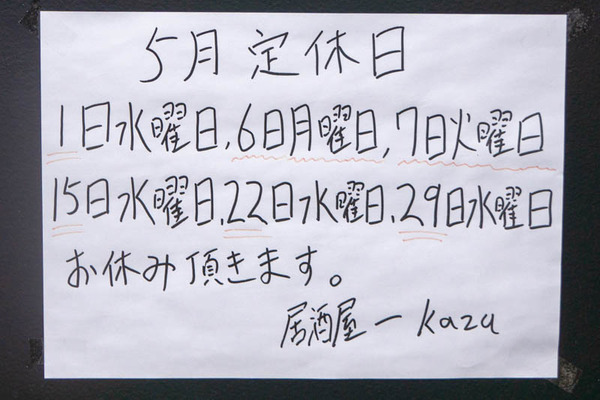 5月定休日
1日水曜日,6日月曜日,7日火曜日
15日水曜日,22日水曜日,29日水曜日
お休み頂きます。
居酒屋一kazu